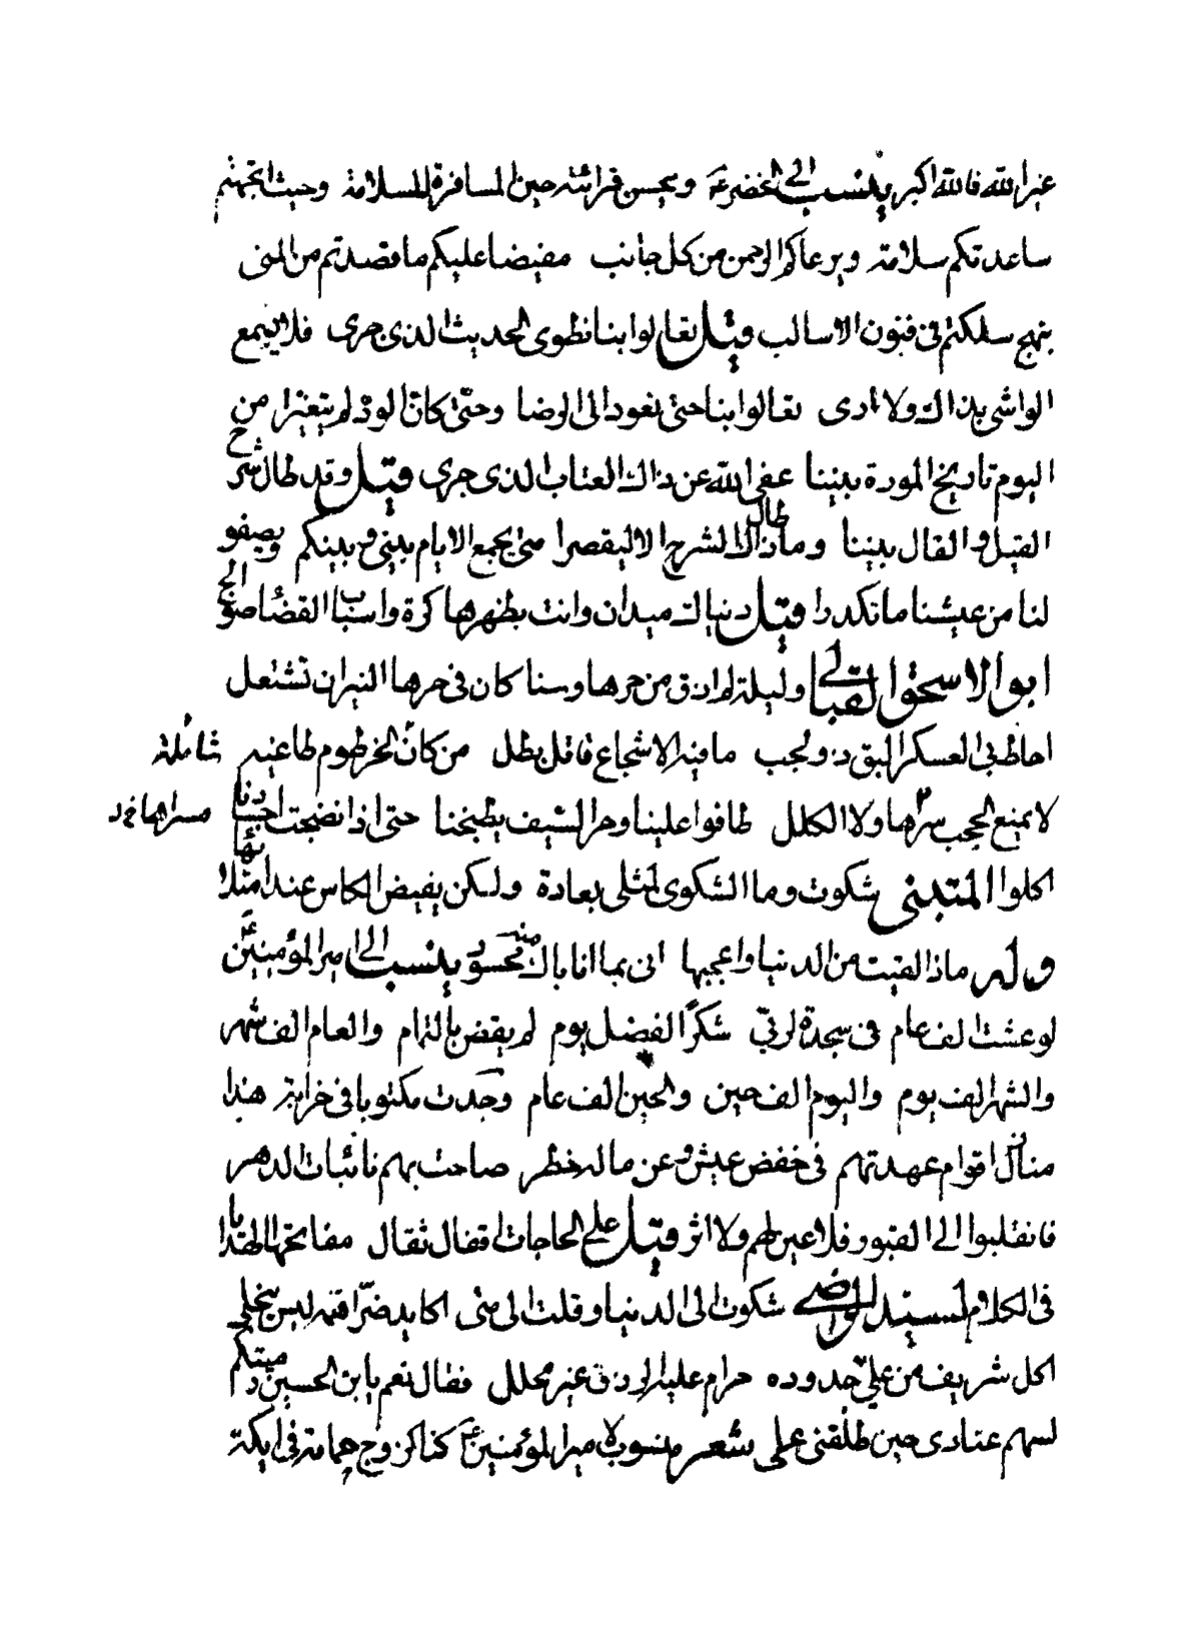 غير الله فالله اكبر ينسب الى الخضر ع ويحسن قرائته حين المسافرة للسلامة وحيث اتجهتم
ساعدتكم سلامة ويرعاكم الرحمن من كل جانب مفيضا عليكم ما قصدتم من المنى
بنهج سلكتم فى فنون الاسالب وقيل تعالوا بنا نطوى الحديث الذى جرى فلا يسمع
الواشى بذاك ولا درى تعالوا بنا حتى نعود الى الرضا وحتى كان الود لم يتغيرا من
اليوم تاريخ المودة بيننا عفى الله عن ذاك العتاب الذى جرى وقيل وقد طال شرح
القيل والقال بيننا وما طال ذاك الشرح الا ليقصرا متى يجمع الايام بينى وبينكم ويصفو
لنا من عيشنا ما تكدرا وقيل دنياك ميدان وانت بظهرها كرة واسباب القضا صوالج
ابو الاسحق القبالى وليلة لم اذق من حرها وسنا كان فى حرها النيران تشتعل
احاط بى العسكر البق ذو لجب ما فيه الا شجاع فاتك بطل من كان الخرطوم طاعنه شائلة
لا يمنع الحجب مسراها ولا الكلل طافوا علينا وحر الصيف يطبخنا حتى اذا نضجت اجسادنا
اكلوا المتنبى شكوت وما الشكوى لمثلى بعادة ولكن يفيض الكاس عند امتلائها
وله ماذا لقيت من الدنيا واعجبها انى بما انا باك منه محسود ينسب الى امير المؤمنين ع
لو عشت الف عام فى سجدة لربى شكرا لفضل يوم لم يقض بالتمام والعام الف شهر
والشهر الف يوم واليوم الف حين والحين الف عام وجدت مكتوبا فى خرابة هذا
منازل اقوام عهدتهم فى خفض عيش وعز ما له خطر صاحت بهم نائبات الدهر
فانقلبوا الى القبور فلا عين لهم ولا اثر وقيل على الحاجات اقفال ثقال مفاتحها الهدايا
فى الكلام لسيد الرضى شكوت الى الدنيا وقلت الى متى اكابد ضرا فقه ليس ينجلى
اكل شريف من على جدوده حرام عليه الرزق غير محلل فقال نعم يابن الحسين رميتكم
لسهم عنادى حين طلقنى على شعر منسوب لامير المؤمنين ع كنا كزوج حمامة فى ايكة